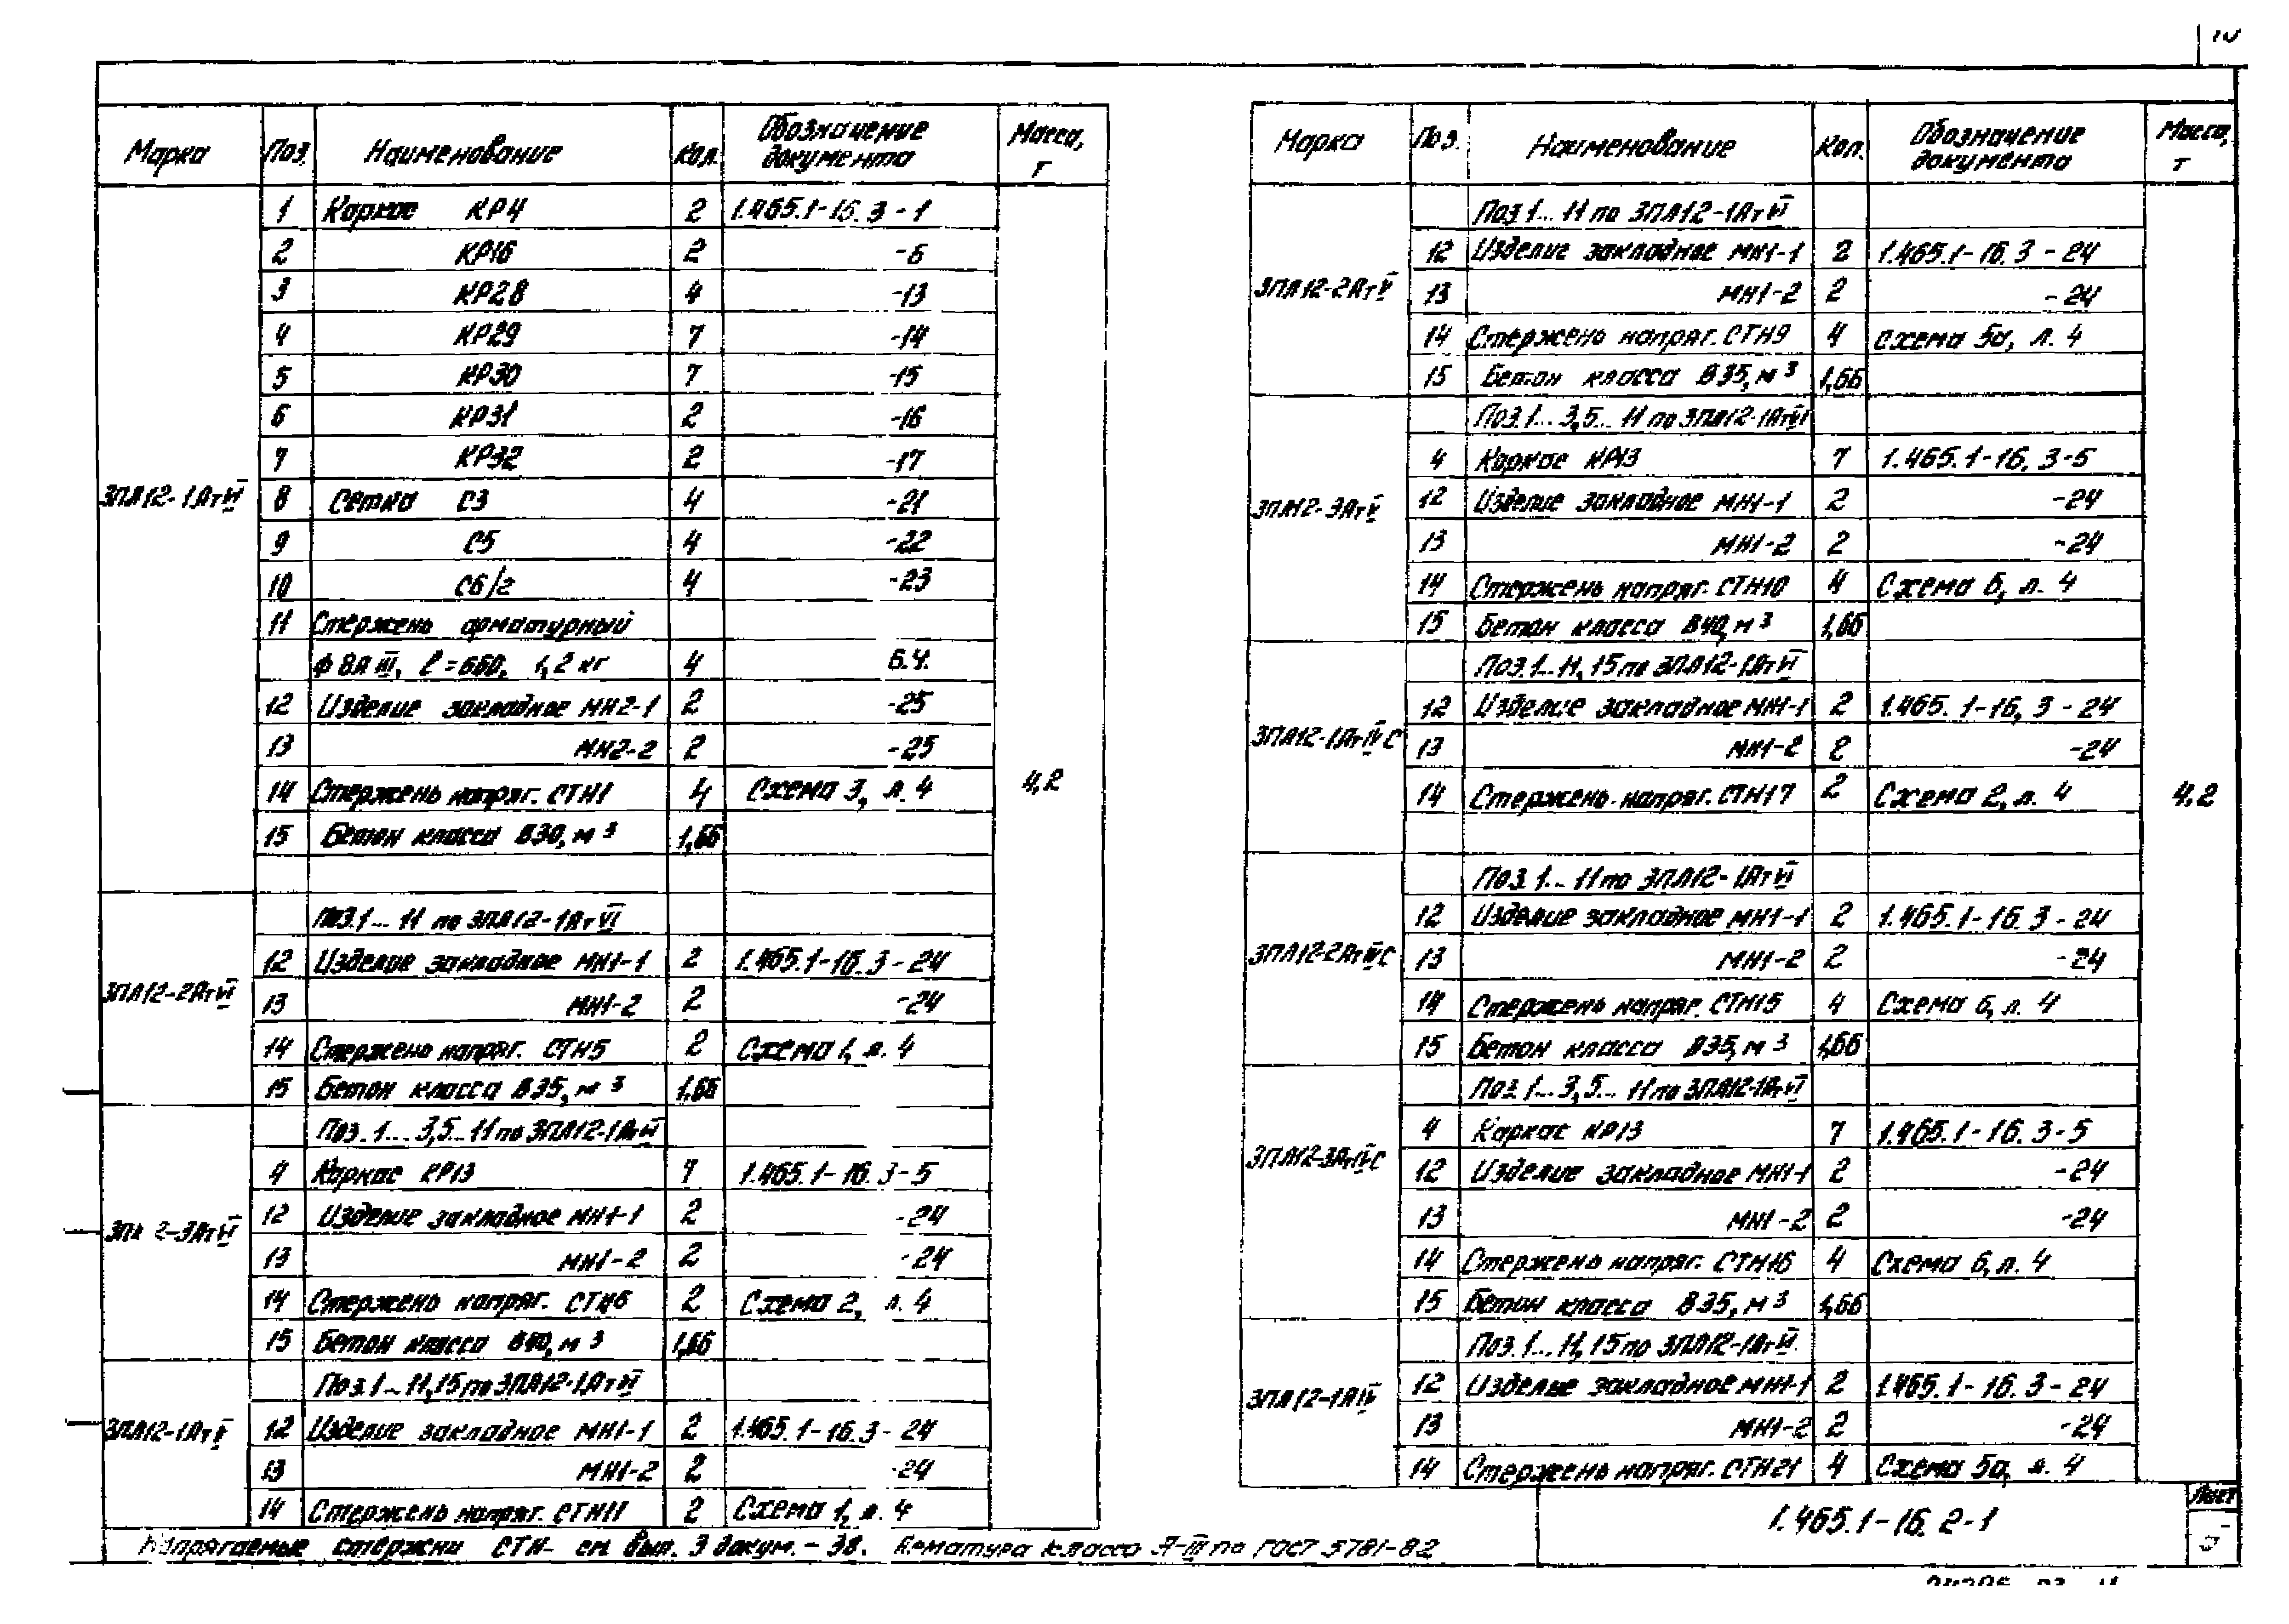 Марка Поз. Наименование Кол. Обозначение документа Масса, т
3ПЛ12-1АтVI
1 Каркас КР4 2 1.465.1-16.3-1
2 КР16 2 -6
3 КР28 4 -13
4 КР29 7 -14
5 КР30 7 -15
6 КР31 2 -16
7 КР32 2 -17
8 Сетка С3 4 -21
9 С5 4 -22
10 С6/г 4 -23
11 Стержень арматурный
ф 8А III, ℓ=660, 1,2 кг 4 б.ч.
12 Изделие закладное МН2-1 2 -25
13 МН2-2 2 -25
14 Стержень напряг. СТН1 4 Схема 3, л. 4
4,2
15 Бетон класса В30, м³ 1,66
3ПЛ12-2АтVI
Поз.1... 11 по 3ПЛ12-1АтVI
12 Изделие закладное МН1-1 2 1.465.1-16.3-24
13 МН1-2 2 -24
14 Стержень напряг. СТН5 2 Схема 1, л. 4
15 Бетон класса В35, м³ 1,66
Поз. 1... 3,5...11 по 3ПЛ12-1АтVI
4 Каркас КР13 7 1.465.1-16.3-5
12 Изделие закладное МН1-1 2 -24
13 МН1-2 2 -24
14 Стержень напряг. СТН6 2 Схема 2, л. 4
15 Бетон класса В40, м³ 1,66
3ПЛ12-1АтV
Поз.1...11,15 по 3ПЛ12-1АтVI
12 Изделие закладное МН1-1 2 1.465.1-16.3-24
13 МН1-2 2 -24
14 Стержень напряг. СТН11 2 Схема 1, л. 4
Марка Поз. Наименование Кол. Обозначение документа Масса, т
3ПЛ12-2АтV
Поз.1... 11 по 3ПЛ12-1АтVI
12 Изделие закладное МН1-1 2 1.465.1-16.3-24
13 МН1-2 2 -24
14 Стержень напряг. СТН9 4 схема 5а, л. 4
15 Бетон класса В35, м³ 1,66
3ПЛ12-3АтV
Поз.1... 3,5... 11 по 3ПЛ12-1АтVI
4 Каркас КР13 7 1.465.1-16.3-5
12 Изделие закладное МН1-1 2 -24
13 МН1-2 2 -24
14 Стержень напряг. СТН10 4 Схема 6, л. 4
15 Бетон класса В40, м³ 1,66
3ПЛ12-1АтIVС
Поз.1...11,15 по 3ПЛ12-1АтVI
12 Изделие закладное МН1-1 2 1.465.1-16.3-24
13 МН1-2 2 -24
14 Стержень напряг. СТН17 2 Схема 2, л. 4
4,2
3ПЛ12-2АтIVС
Поз.1... 11 по 3ПЛ12-1АтVI
12 Изделие закладное МН1-1 2 1.465.1-16.3-24
13 МН1-2 2 -24
14 Стержень напряг. СТН15 4 Схема 6, л. 4
15 Бетон класса В35, м³ 1,66
3ПЛ12-3АтIVС
Поз.1... 3,5... 11 по 3ПЛ12-1АтVI
4 Каркас КР13 7 1.465.1-16.3-5
12 Изделие закладное МН1-1 2 -24
13 МН1-2 2 -24
14 Стержень напряг. СТН16 4 Схема 6, л. 4
15 Бетон класса В35, м³ 1,66
3ПЛ12-1АIV
Поз.1...11,15 по 3ПЛ12-1АтVI.
12 Изделие закладное МН1-1 2 1.465.1-16.3-24
13 МН1-2 2 -24
14 Стержень напряг. СТН21 4 Схема 5а, л. 4
Напрягаемые стержни СТН- см. вып. 3 докум.- 38. Арматура класса А-III по ГОСТ 5781-82
1.465.1-16.2-1
Лист